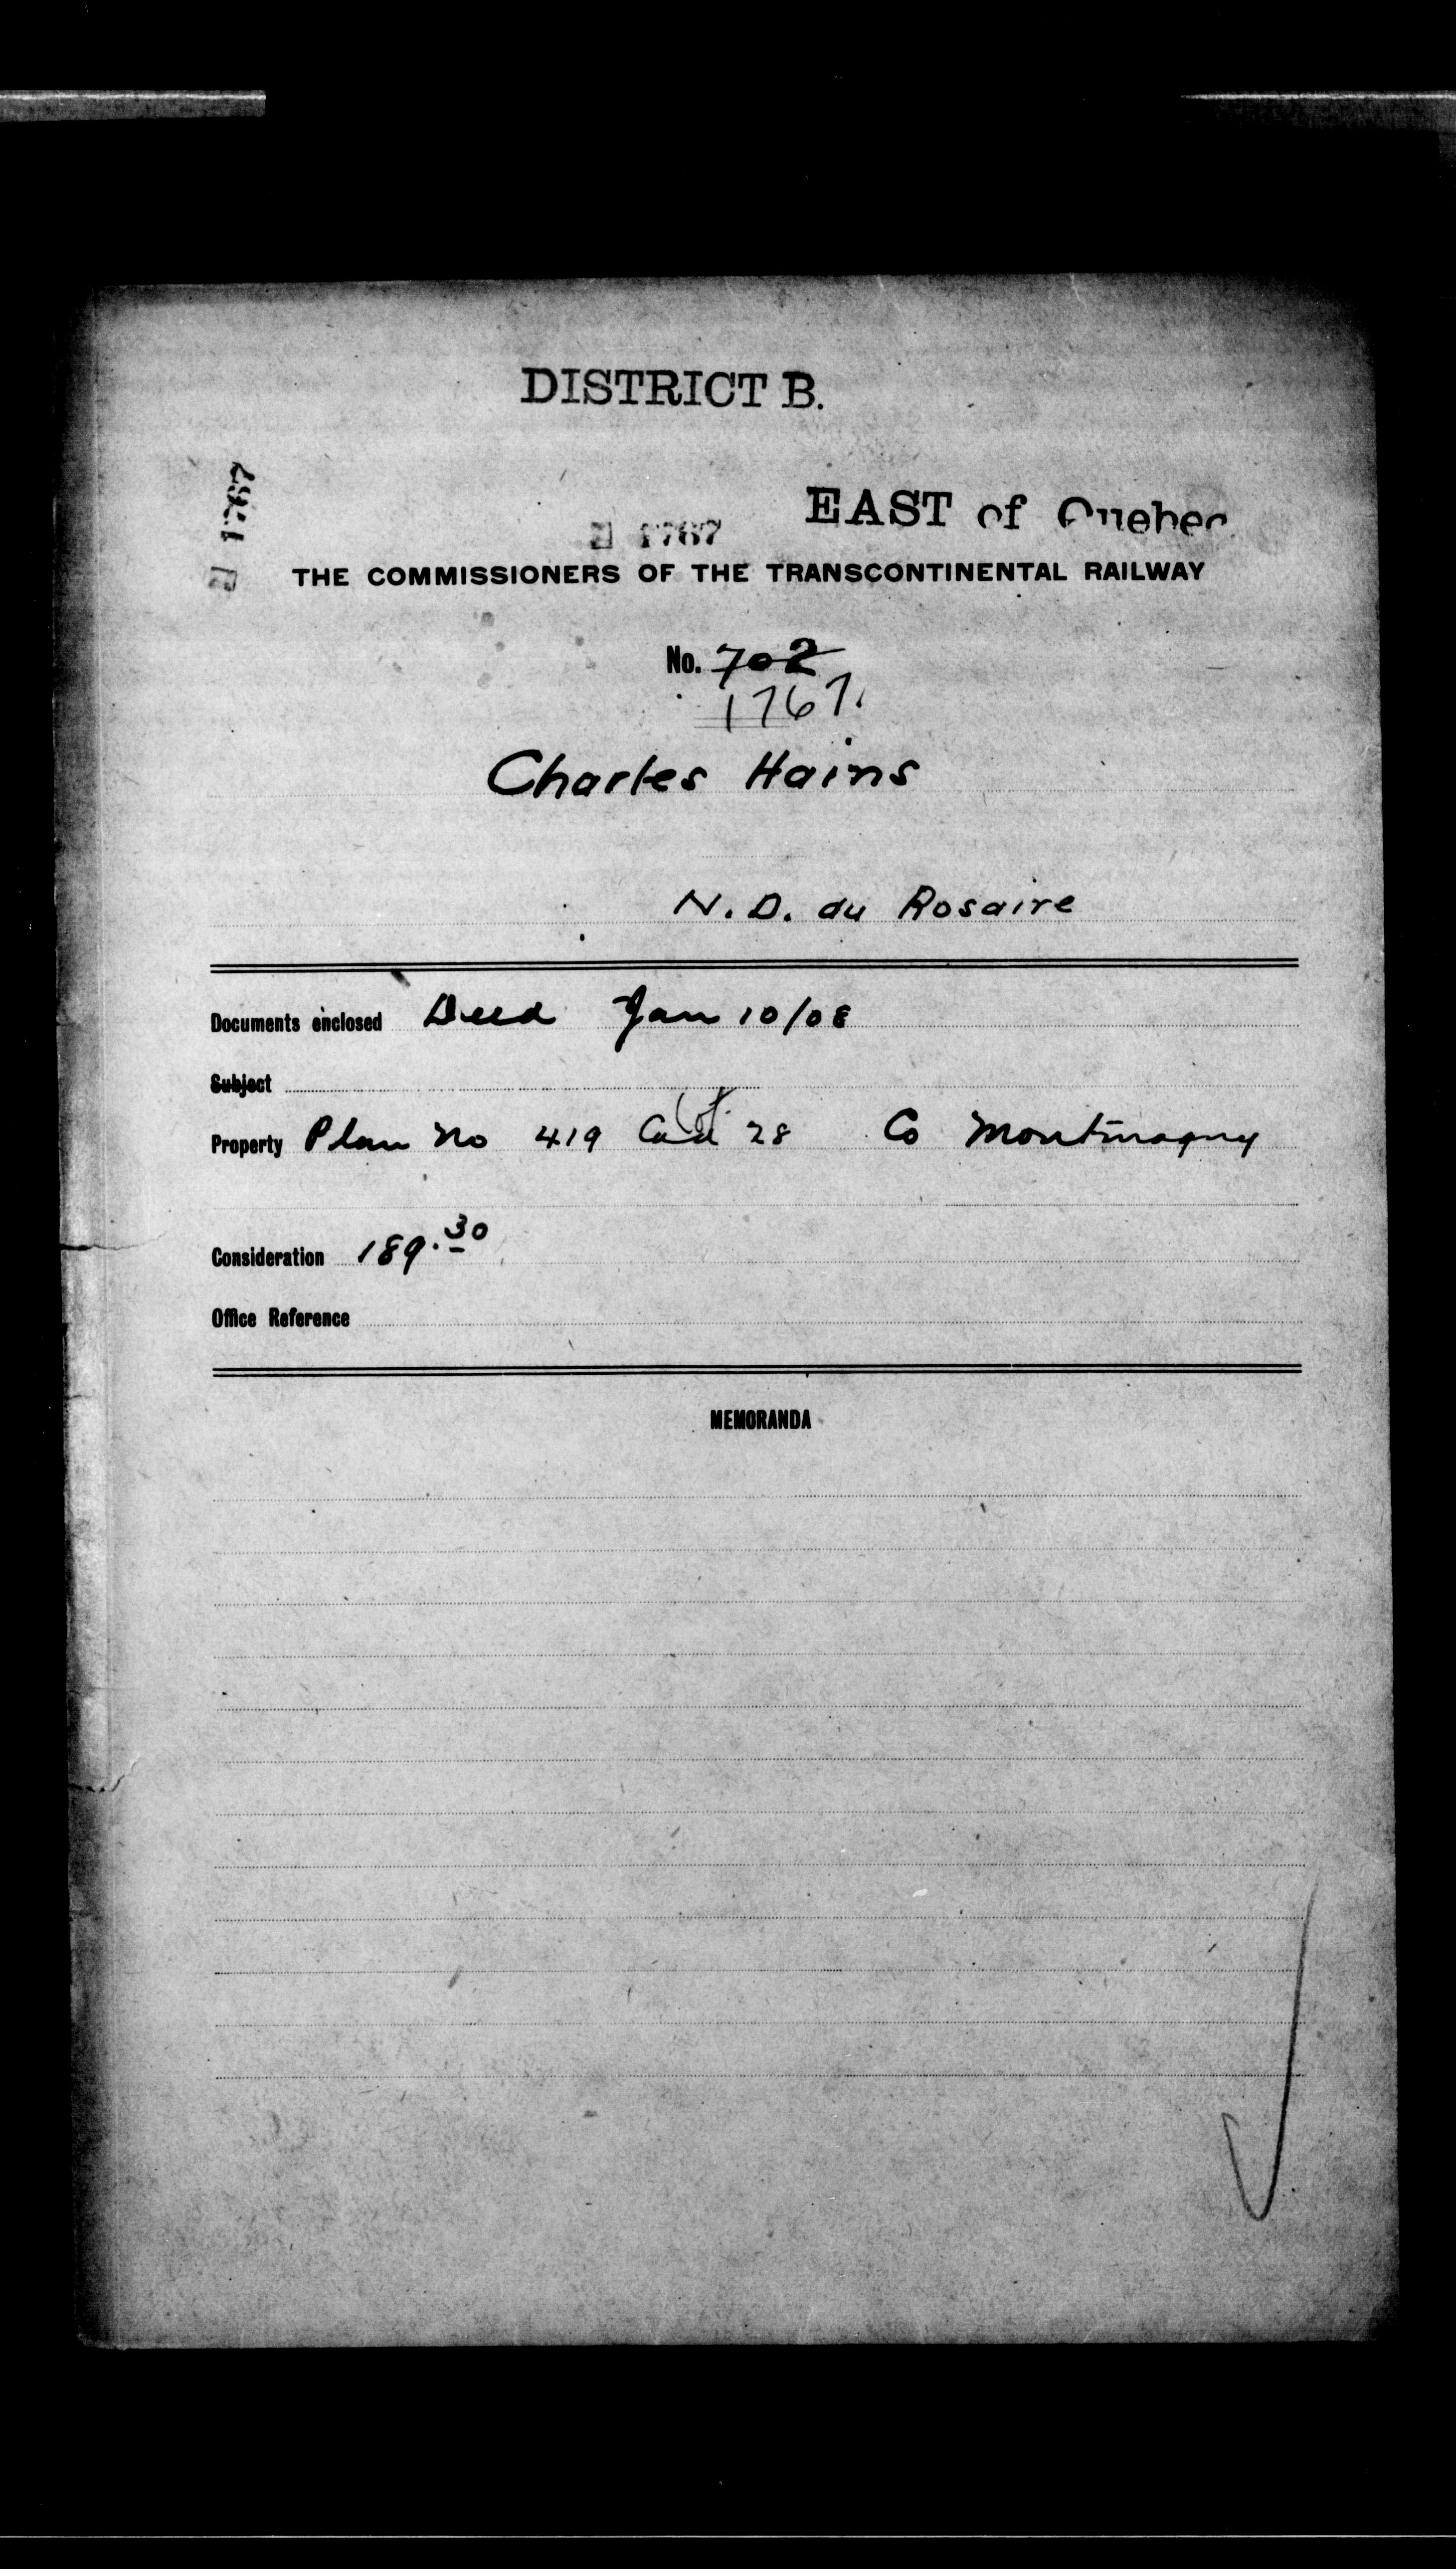 DISTRICT B.
1767
EAST of Quebec
1767
THE COMMISSIONERS OF THE TRANSCONTINENTAL RAILWAY
No. 702
1767.
Charles Hains
N. D. du Rosaire
Documents enclosed Deed Jan 10/08
Subject
Property Plan No 419 Cad 28 Co Montmagny
Consideration 189.30
Office Reference
MEMORANDA